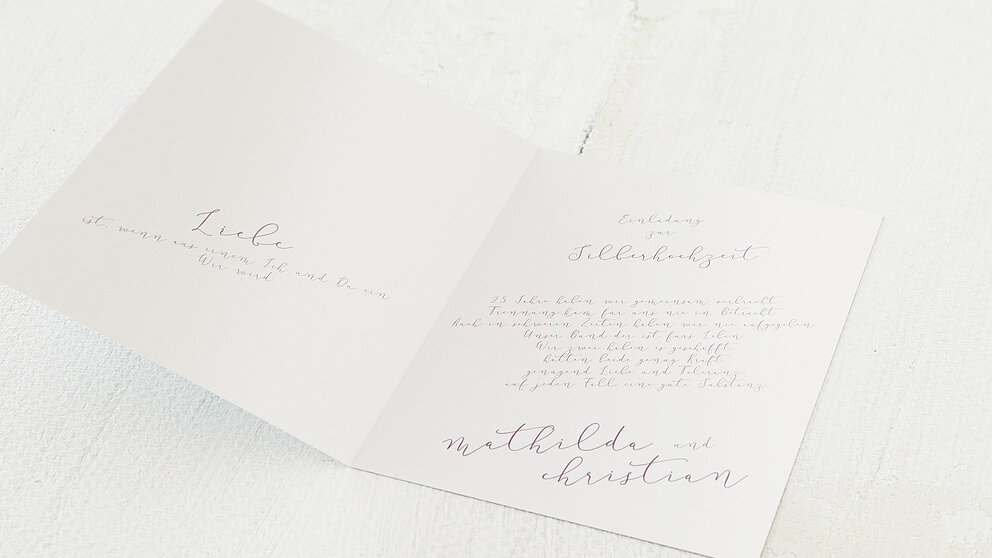 Liebe
ist, wenn aus einem Ich und Du ein
Wir wird
Einladung
zur
Silberhochzeit
25 Jahre haben wir gemeinsam verbracht
Trennung kam für uns nie in Betracht
Auch in schweren Zeiten haben wir nie aufgegeben
Unser Bund der ist fürs Leben
Wir zwei haben es geschafft,
hatten beide genug Kraft
genügend Liebe und Toleranz,
auf jeden Fall eine gute Substanz
mathilda und
christian